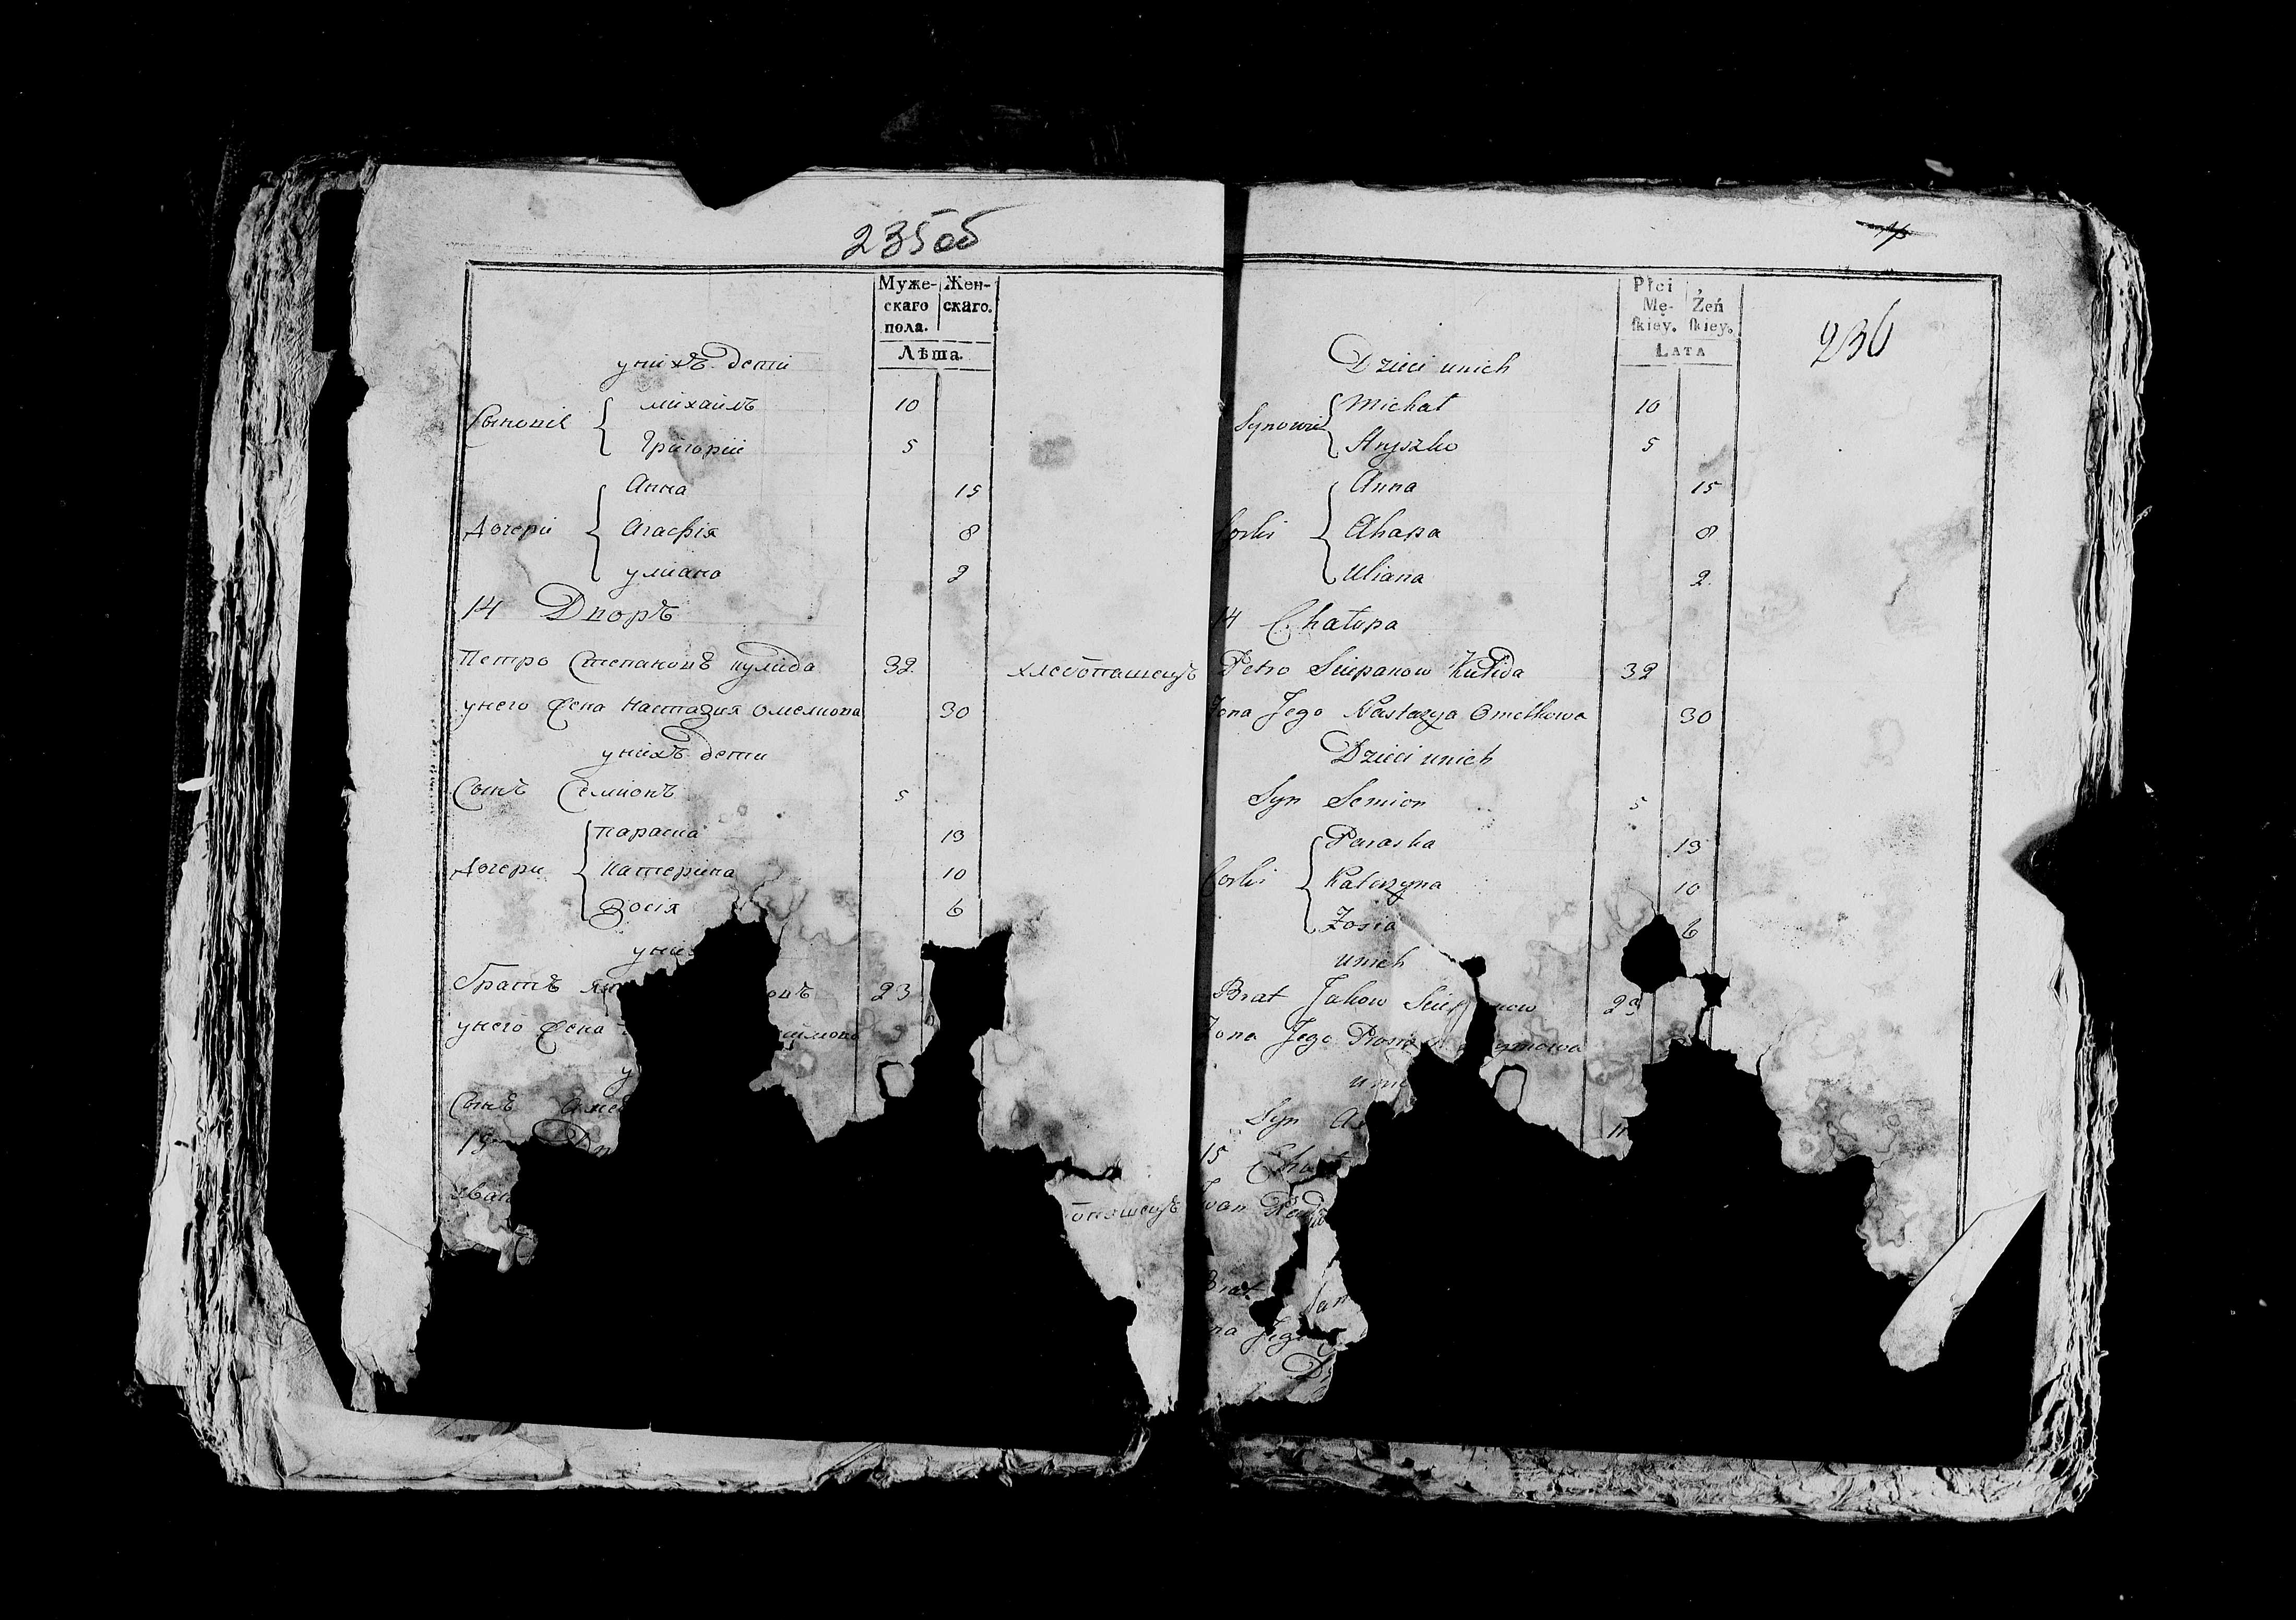 235об
Муже- Жен-
скаго скаго.
пола.
Лѣта.
унихъ дети
Сыновіе { михаилъ 10
Григорий 5
Дочери { Анна 15
Агафія 8
улиана 2
14 Дворъ
Петро Степановъ кулида 32 хлебопашецъ
унего Жена Настазия Омелкова 30
унихъ дети
Сынъ Семионъ 5
Дочери { параска 13
катерина 10
Зосія 6
уних
братъ як овъ 23
унего Жена симова
у
Сынъ
15 Дв
Иван опашецъ
236
Płci
Mę- Żeń
skiey. skiey.
LATA
Dzieci unich
Synowie { Michał 10
Hryszko 5
Corki { Anna 15
Ahassa 8
Uliana 2
14 Chałupa
Petro Sciepanow Kulida 32
Żona Jego Nastazya Omelkowa 30
Dzieci unich
Syn Semion 5
Corki { Paraska 13
Katerzyna 10
Zosia 6
unich
Brat Jakow Sciep now 23
Żona Jego ymowa
uni
Syn A
15 Chał
Iwan
Brat
na Jego
D